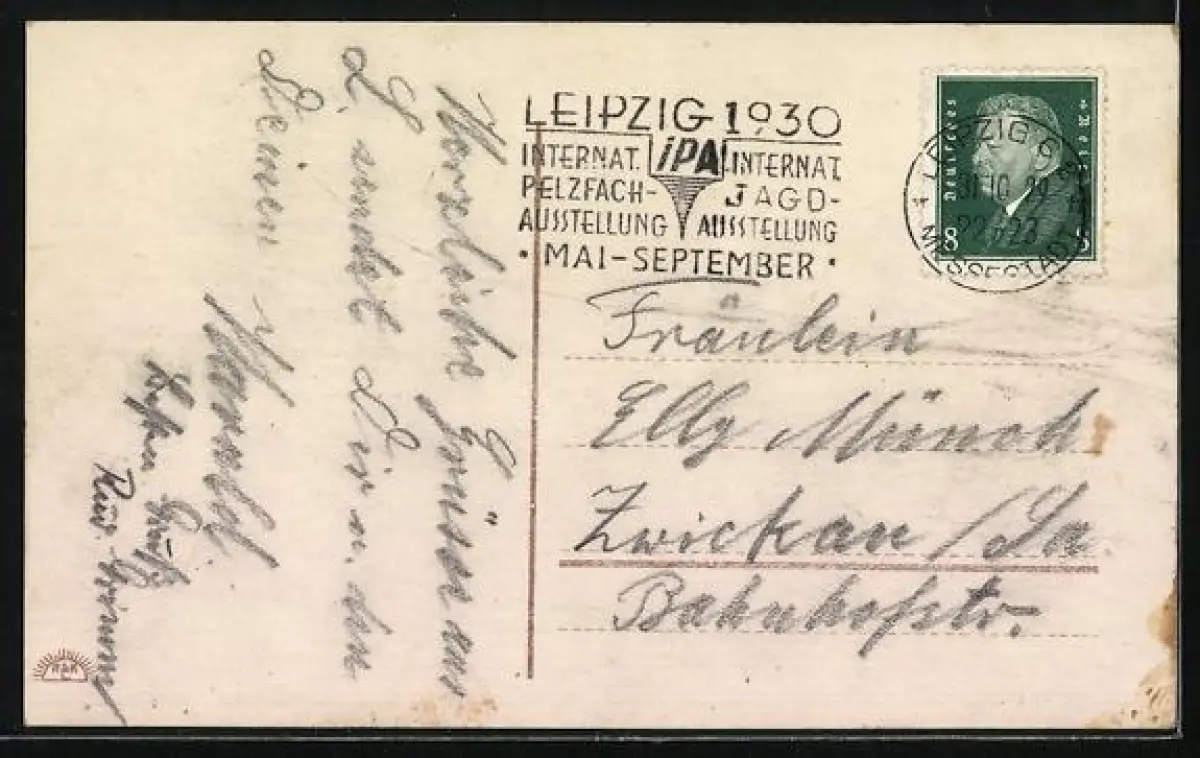 LEIPZIG 1930
INTERNAT. iPA INTERNAT.
PELZFACH- JAGD-
AUSSTELLUNG AUSSTELLUNG
· MAI-SEPTEMBER ·
Deutsches Reich
8 8
LEIPZIG
31.10.29
22-23
MESSESTADT
Fräulein
Elly Münch
Zwickau / Sa
Bahnhofstr.
Herzliche Grüße aus
L. sendet Dir u. den
Deinen